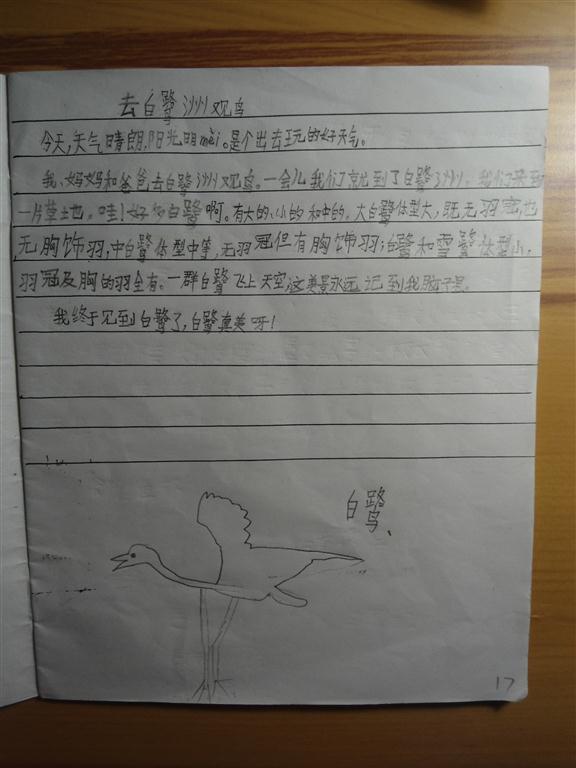 去白鹭洲观鸟
今天,天气晴朗,阳光明mèi。是个出去玩的好天气。
我、妈妈和爸爸去白鹭洲观鸟。一会儿我们就到了白鹭洲,我们来到
一片草地。哇!好多白鹭啊。有大的、小的和中的。大白鹭体型大,既无羽冠,也
无胸饰羽;中白鹭体型中等,无羽冠但有胸饰羽;白鹭和雪鹭体型小,
羽冠及胸的羽全有。一群白鹭飞上天空这美景永远记到我脑子里。
我终于见到白鹭了,白鹭真美呀!
白鹭、
17